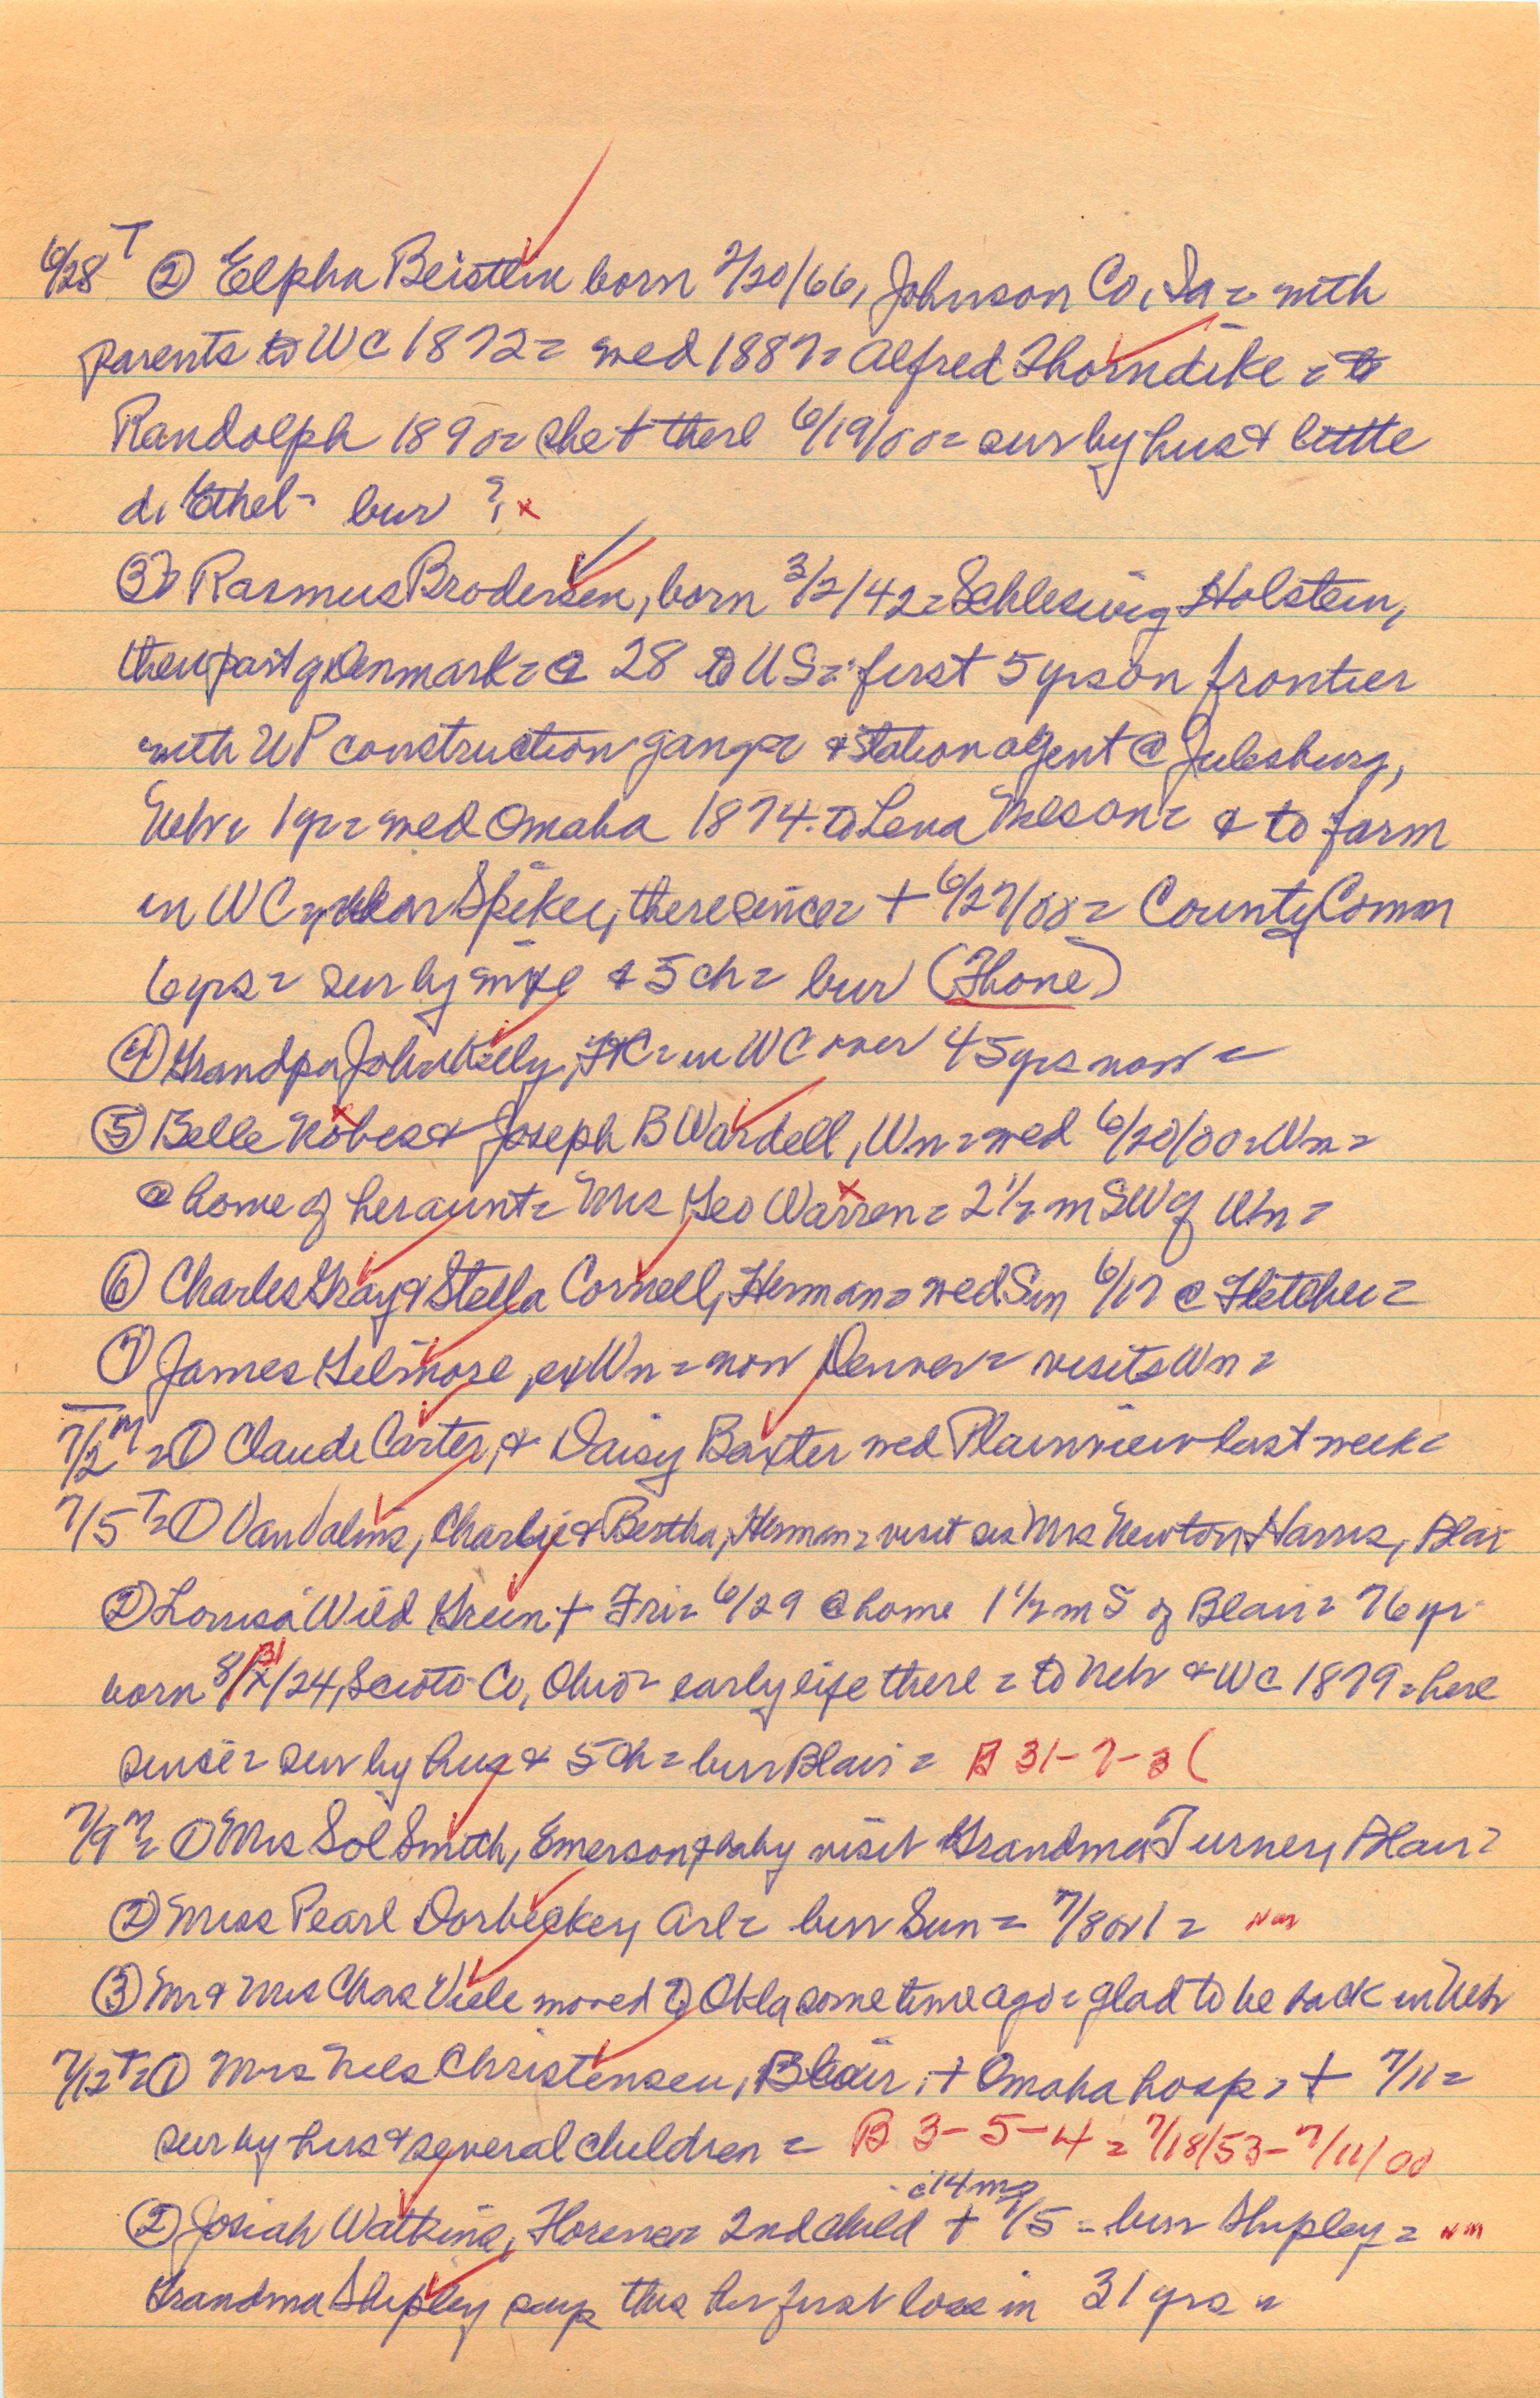 6/28 T ② Elpha Beistlin born 7/20/66, Johnson Co, Ia = with
parents to WC 1872 = wed 1887 = Alfred Thorndike = to
Randolph 1890 = she + there 6/19/00 = sur by hus & little
d. Ethel - bur ? x
③ Rasmus Brodersen, born 3/2/42 = Schleswig Holstein,
then part of Denmark = @ 28 to US = first 5 yrs on frontier
with UP construction gangs = & station agent @ Julesburg,
Nebr 1 yr = wed Omaha 1874 to Lena Nelson = & to farm
in WC near Spiker, there since = + 6/27/00 = County Comm
6 yrs = sur by wife & 5 ch = bur (Thone)
④ Grandpa John Kelly, FC = in WC over 45 yrs now =
⑤ Belle Nobes & Joseph B Wardell, Wn = wed 6/20/00 = Wn =
@ home of her aunt = Mrs Geo Warren = 2 1/2 m SW of Wn =
⑥ Charles Gray & Stella Cornell, Herman = wed Sun 6/17 @ Fletcher =
⑦ James Gilmore, ex Wn = now Denver = visits Wn =
7/2 M = ① Claude Carter, & Daisy Baxter wed Plainview last week =
7/5 T = ① Van Valins, Charlie & Bertha, Herman = visit sis Mrs Newton Harris, Blair
② Louisa Wild Green + Fri = 6/29 @ home 1 1/2 m S of Blair = 76 yr
born 8/31/24, Scioto Co, Ohio = early life there = to Neb & WC 1879 = here
since = sur by hus & 5 ch = bur Blair = B 31-7-3 (
7/9 M = ① Mrs Sol Smith, Emerson, & baby visit Grandma Turner, Blair =
② Miss Pearl Dorbecker, Arl = bur Sun = 7/8 or 1 = nm
③ Mr & Mrs Chas Viele moved to Okla some time ago = glad to be back in Neb
7/12 T = ① Mrs Nels Christensen, Blair, + Omaha hosp = + 7/11 =
sur by hus & several children = B 3-5-4 = 7/18/53 - 7/11/00
c 14 mo
② Josiah Watkins, Florence = 2nd child + 7/5 = bur Shipley = nm
Grandma Shipley says this her first loss in 31 yrs =